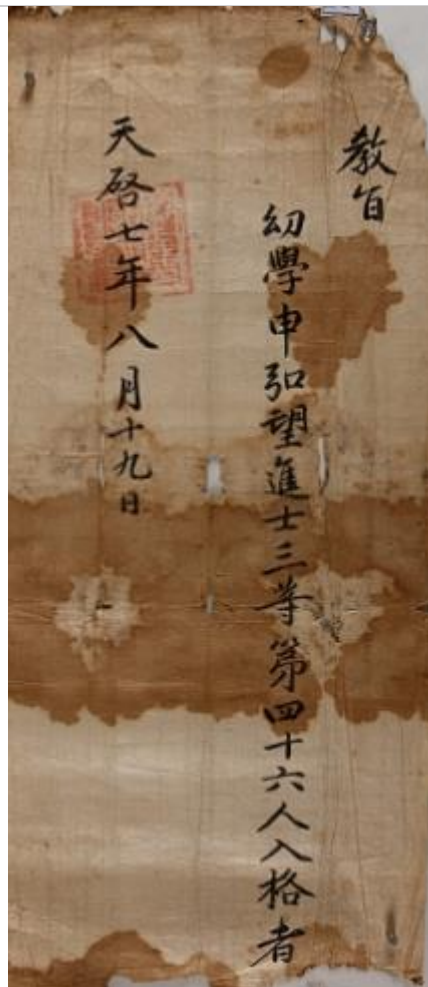 教旨
幼學申弘望進士三等第四十六人入格者
天啓七年八月十九日